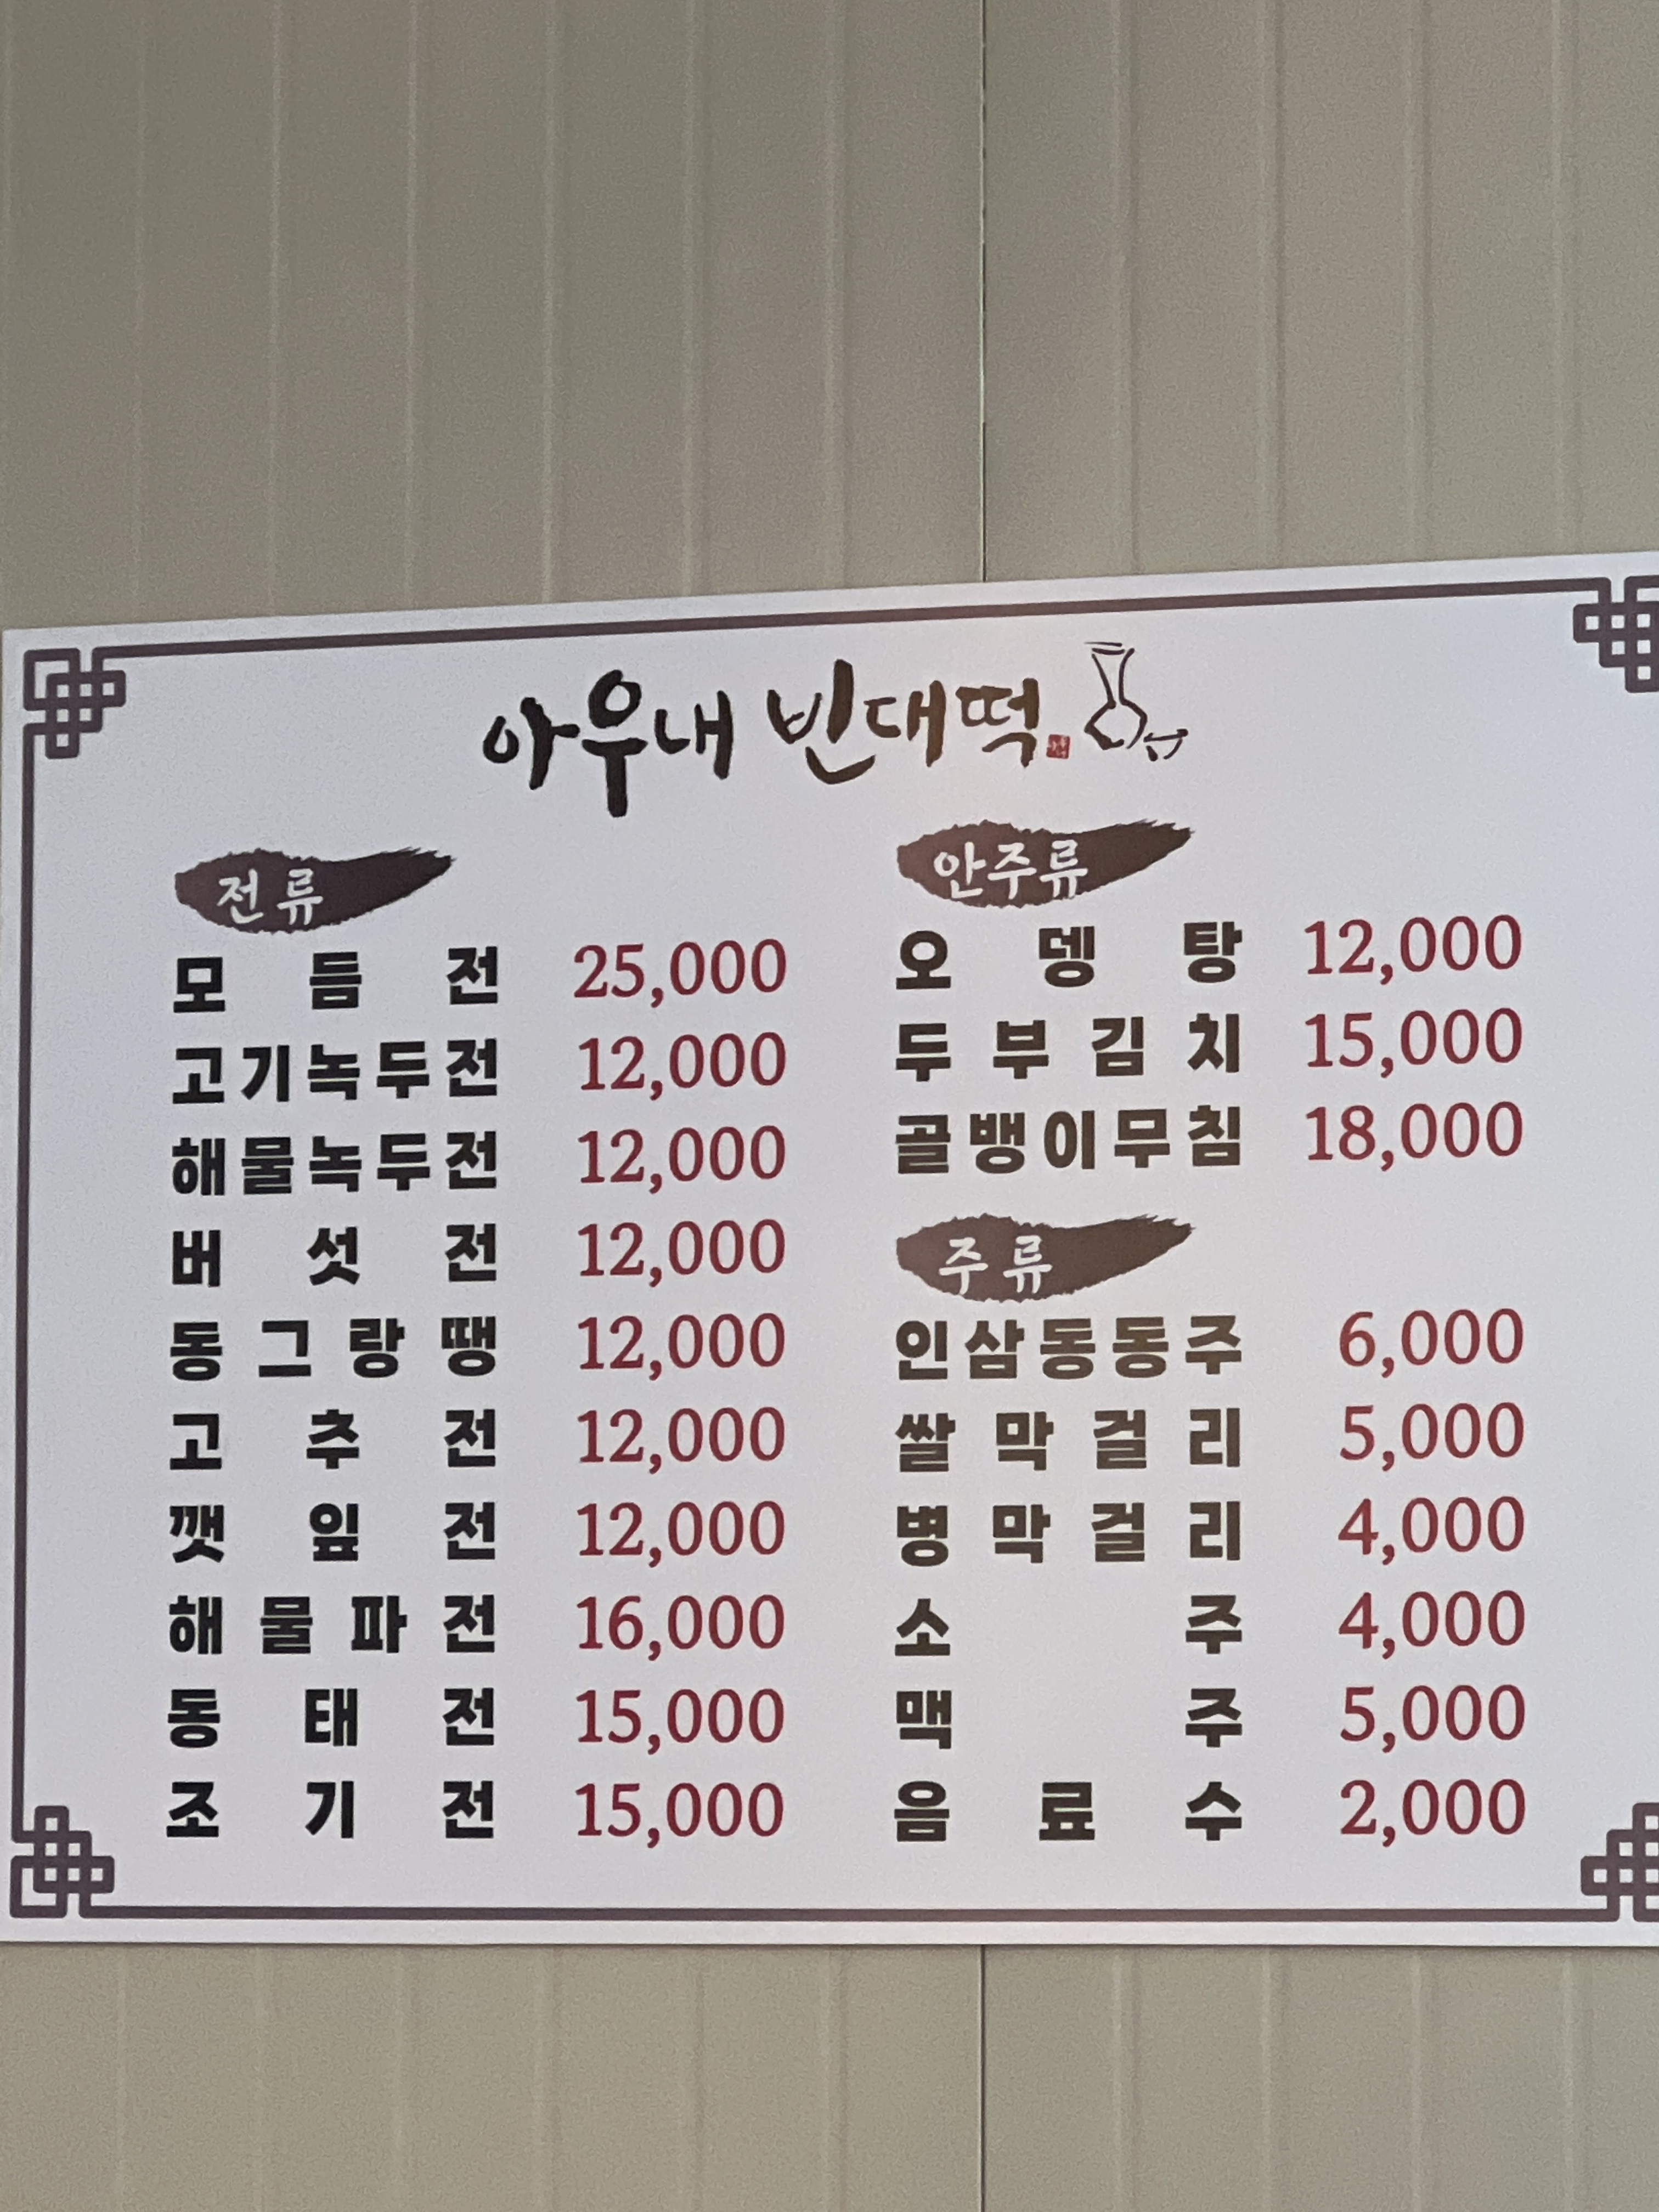 아우내 빈대떡
전류
모듬전 25,000
고기녹두전 12,000
해물녹두전 12,000
버섯전 12,000
동그랑땡 12,000
고추전 12,000
깻잎전 12,000
해물파전 16,000
동태전 15,000
조기전 15,000
안주류
오뎅탕 12,000
두부김치 15,000
골뱅이무침 18,000
주류
인삼동동주 6,000
쌀막걸리 5,000
병막걸리 4,000
소주 4,000
맥주 5,000
음료수 2,000